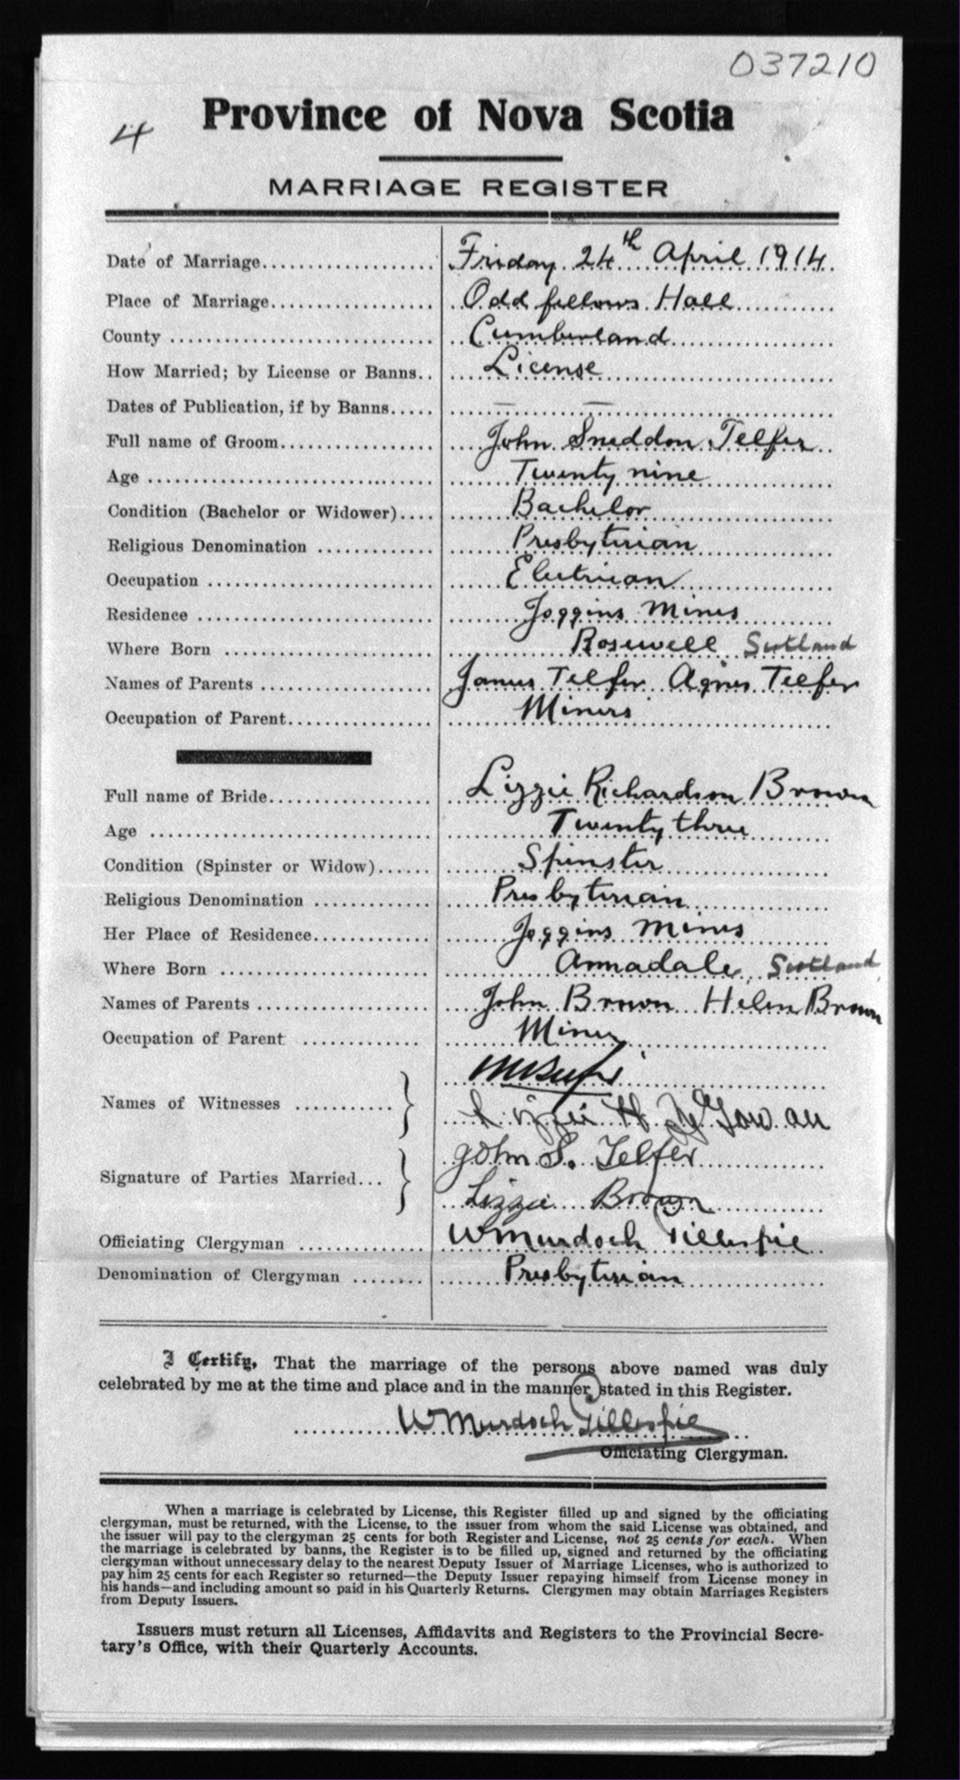 037210
4
Province of Nova Scotia
MARRIAGE REGISTER
Date of Marriage Friday 24th April 1914.
Place of Marriage Odd fellows Hall
County Cumberland
How Married; by License or Banns License
Dates of Publication, if by Banns — —
Full name of Groom John Sneddon Telfer
Age Twenty nine
Condition (Bachelor or Widower) Bachelor
Religious Denomination Presbyterian
Occupation Electrician
Residence Joggins Mines
Where Born Rosewell Scotland
Names of Parents James Telfer Agnes Telfer
Occupation of Parent Miners
Full name of Bride Lizzie Richardson Brown
Age Twenty three
Condition (Spinster or Widow) Spinster
Religious Denomination Presbyterian
Her Place of Residence Joggins Mines
Where Born Annadale, Scotland
Names of Parents John Brown Helen Brown
Occupation of Parent Miner
Names of Witnesses
Lizzie H. McGowan
Signature of Parties Married John S. Telfer
Lizzie Brown
Officiating Clergyman W Murdoch Gillespie
Denomination of Clergyman Presbyterian
I Certify, That the marriage of the persons above named was duly
celebrated by me at the time and place and in the manner stated in this Register.
W Murdoch Gillespie
Officiating Clergyman.
When a marriage is celebrated by License, this Register filled up and signed by the officiating
clergyman, must be returned, with the License, to the issuer from whom the said License was obtained, and
the issuer will pay to the clergyman 25 cents for both Register and License, not 25 cents for each. When
the marriage is celebrated by banns, the Register is to be filled up, signed and returned by the officiating
clergyman without unnecessary delay to the nearest Deputy Issuer of Marriage Licenses, who is authorized to
pay him 25 cents for each Register so returned—the Deputy Issuer repaying himself from License money in
his hands—and including amount so paid in his Quarterly Returns. Clergymen may obtain Marriages Registers
from Deputy Issuers.
Issuers must return all Licenses, Affidavits and Registers to the Provincial Secre-
tary's Office, with their Quarterly Accounts.